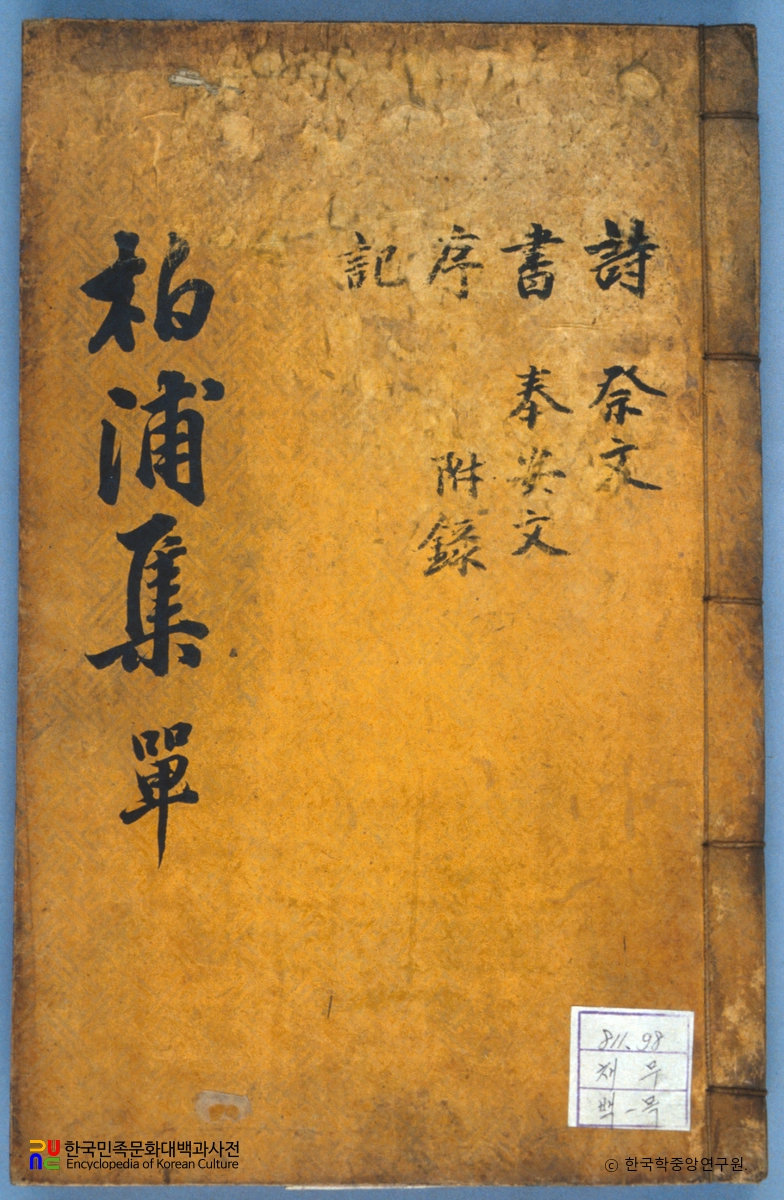 詩 祭文
書 奉安文
序 附錄
記
柏浦集 單
811.98
채 무
백-목
한국민족문화대백과사전
Encyclopedia of Korean Culture
ⓒ 한국학중앙연구원.